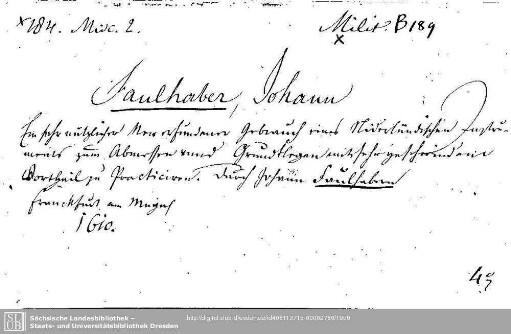 x 184. Misc. 2.
Milit. B 189
x
Faulhaber, Johann
Ein sehr nützlicher New erfundener Gebrauch eines Niderländischen Instru-
ments zum Abmessen unnd Grundtlegen mit sehr geschwindem
Vortheil zu Practiciren. Durch Johann Faulhabern
Franckfurt am Mayn
1610.
4°
Sächsische Landesbibliothek –
Staats- und Universitätsbibliothek Dresden